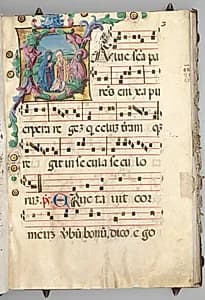 Salue scā pa
rēs enixa pu
erpera re gez q celuz trām qz
re git in se cu la se cu lo
ruz. E ruc ta uit cor
meuz vbū bonū, dico e go